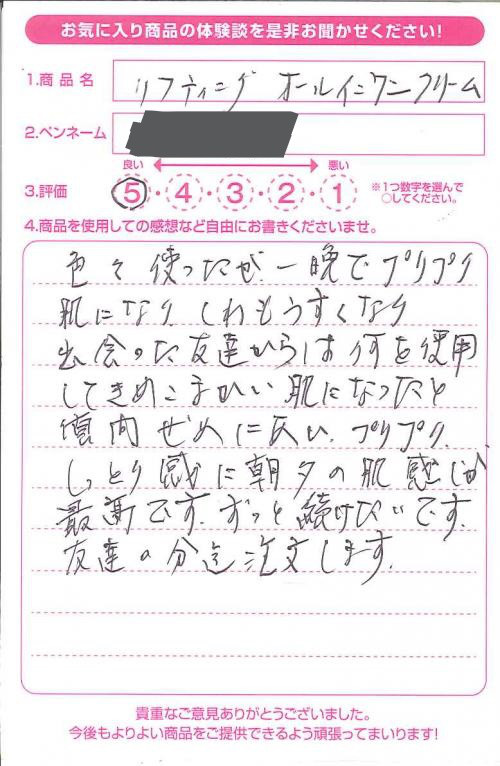 お気に入り商品の体験談を是非お聞かせください!
1.商品名
リフティング オールインワンクリーム
2.ペンネーム
良い 悪い
3.評価
5・4・3・2・1
※1つ数字を選んで
○してください。
4.商品を使用しての感想など自由にお書きくださいませ。
色々使ったが、一晩でプリプリ
肌になり、しわもうすくなり
出会った友達からは何を使用
してきめこまかい肌になったと
質問ぜめにあい、プリプリ、
しっとり感に朝夕の肌感じが
最高です。ずっと続けたいです。
友達の分迄注文します。
貴重なご意見ありがとうございました。
今後もよりよい商品をご提供できるよう頑張ってまいります!